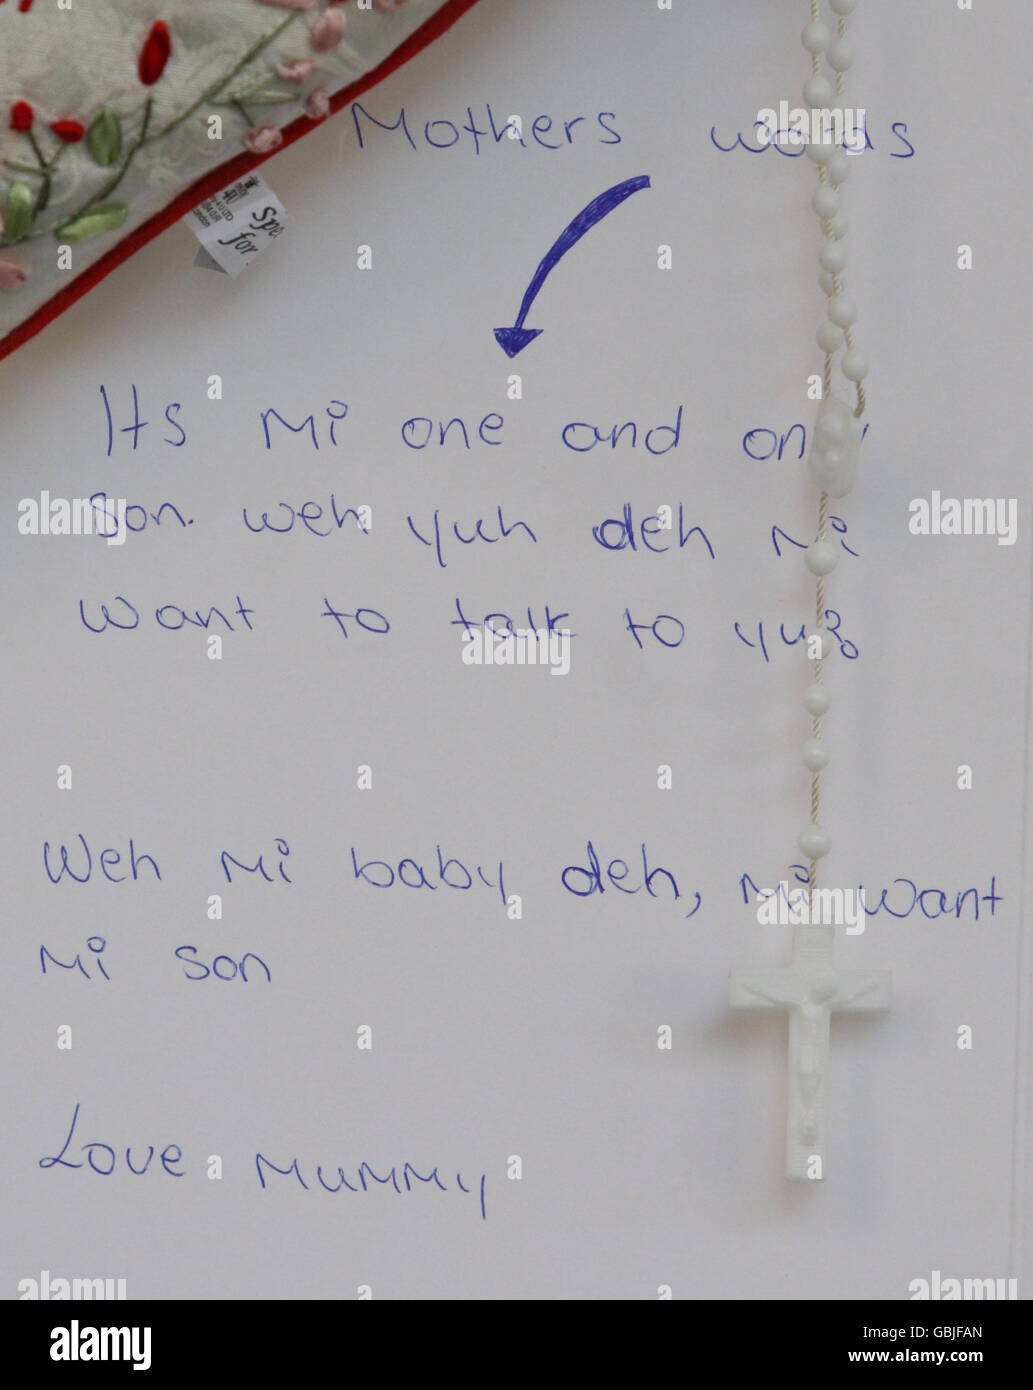 Mothers words
Its Mi one and on
son. weh yuh deh Mi
want to talk to yu?
Weh Mi baby deh, Mi want
Mi son
Love Mummy
Spe
for
alamy
Image ID: GBJFAN
www.alamy.com